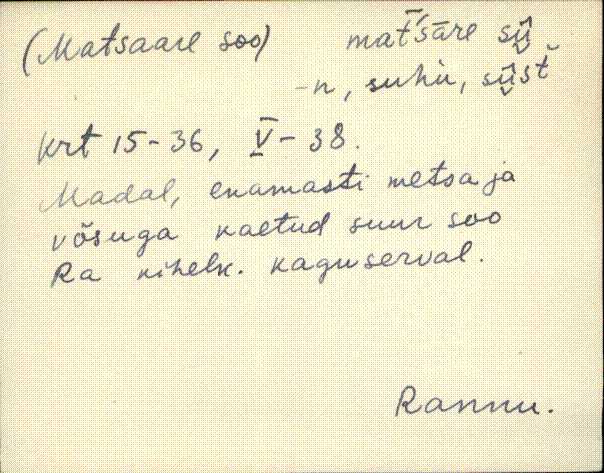 (Matsaare soo) mat'sāre sū̬
-n, suhu, sū̬st
Krt 15-36, V-38.
Madal, enamasti metsa ja
võsuga kaetud suur soo
Ra kihelk. kaguserval.
Rannu.